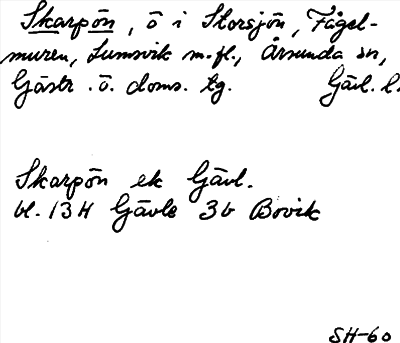 Skarpön, ö i Storsjön, Fågel-
muren, Lumsvik m.fl., Årsunda sn,
Gästr. ö. doms. tg. Gävl. l.
Skarpön ek Gävl.
bl. 13H Gävle 3b Bovik
SH-60